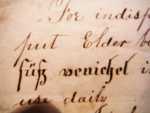 For indisp
put Elder b
füß venichel i
use daily